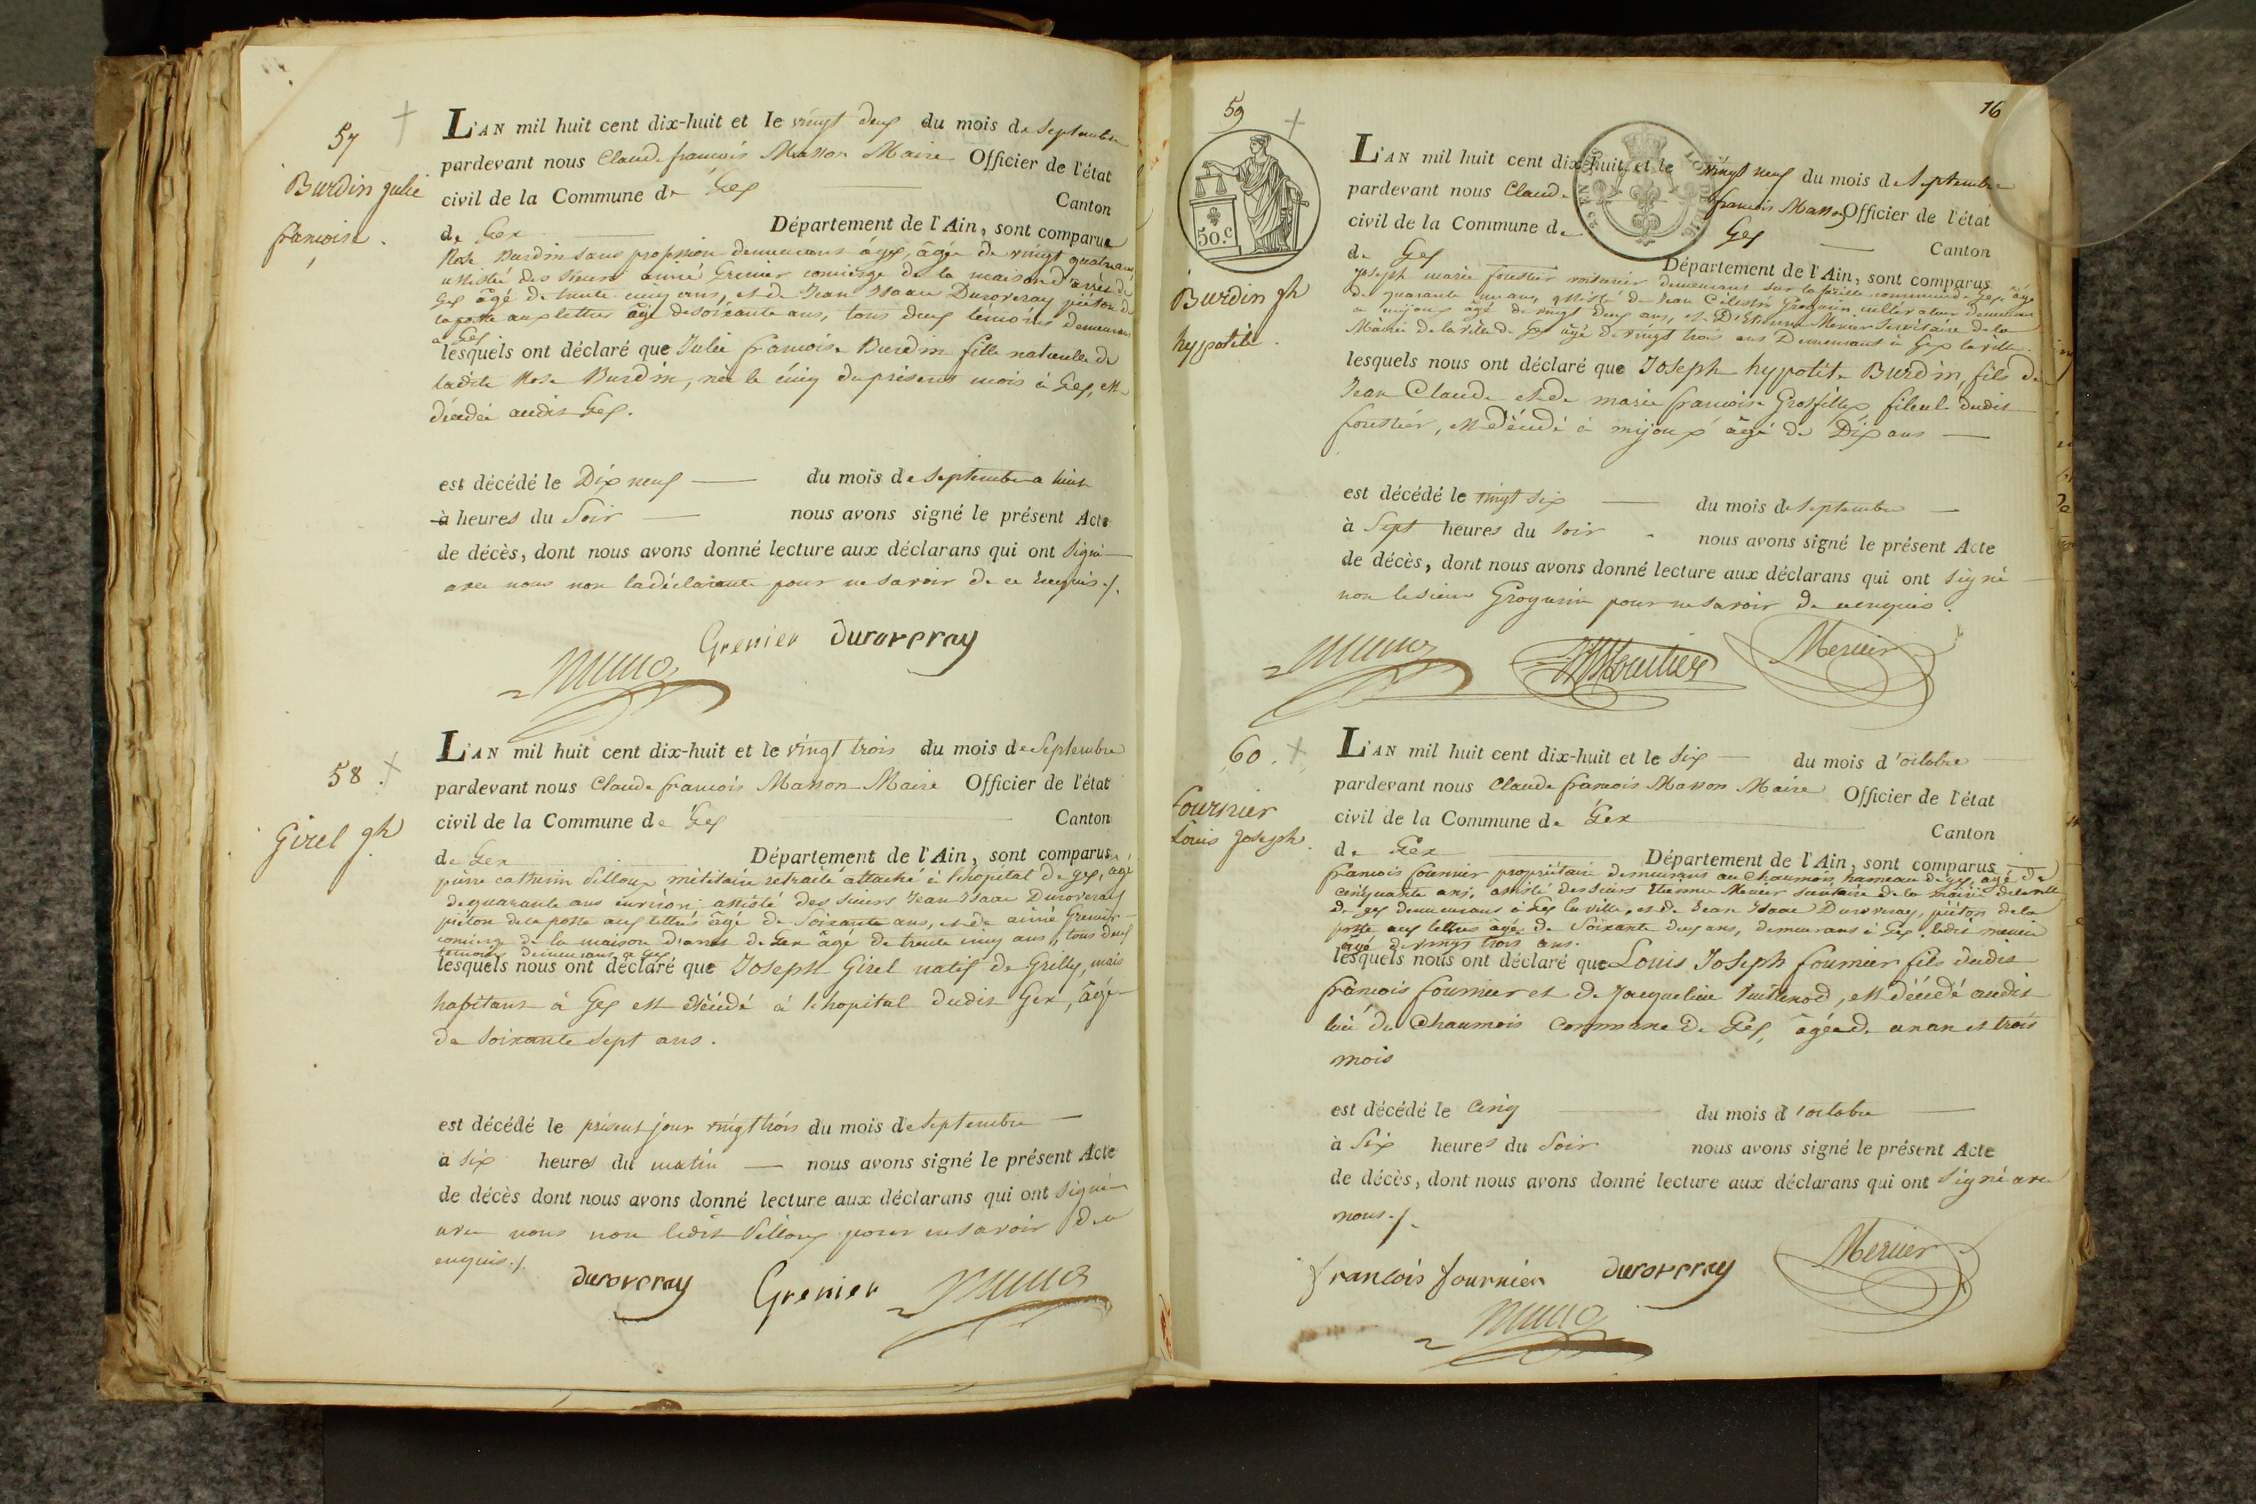 57
Burdin Julie
francoise.
L'AN mil huit cent dix-huit et le vingt deux du mois de Septembre
pardevant nous Claude francois Masson Maire Officier de l'état
civil de la Commune de Gex Canton
de Gex Département de l'Ain, sont comparue
Rose Burdin sans profession demeurant à gex, âgée de vingt quatre ans
assistée des Sieurs aimé Grenier concierge de la maison d'arrêt de
Gex âgé de trente cinq ans, et de Jean Isaac Duroveray piéton de
la poste aux lettres âgé de soixante ans, tous deux témoins demeurant
à Gex
lesquels ont déclaré que Julie francoise Burdin fille naturelle de
ladite Rose Burdin, née le cinq du présent mois à Gex, est
décédée audit Gex.
est décédé le Dix neuf du mois de Septembre a huit
à heures du Soir nous avons signé le présent Acte
de décès, dont nous avons donné lecture aux déclarans qui ont Signé
avec nous non la déclarante pour ne savoir de ce Enquis./.
Grenier duroveray
58
Girel Jh
L'AN mil huit cent dix-huit et le vingt trois du mois de Septembre
pardevant nous Claude francois Masson Maire Officier de l'état
civil de la Commune de Gex Canton
de Gex Département de l'Ain, sont comparus
pierre catherin militaire retraité attaché à l'hopital de gex, agé
de quarante ans environ; assisté des Sieurs Jean Isaac Duroveray
piéton de la poste aux lettres âgé de Soixante ans, et de aimé Grenier
concierge de la maison d'arret de Gex âgé de trente cinq ans, tous deux
temoins demeurans a Gex
lesquels nous ont déclaré que Joseph Girel natif de Grilly, mais
habitant à Gex est décédé à l'hopital dudit Gex, âgé
de Soixante Sept ans.
est décédé le présent jour vingt trois du mois de Septembre
à Six heures du matin nous avons signé le présent Acte
de décès dont nous avons donné lecture aux déclarans qui ont Signé
avec nous non ledit pour ne savoir de ce
enquis./.
duroveray Grenier
16
59
50.c
Burdin Jh
hypolite.
L'AN mil huit cent dix-huit et le vingt neuf du mois de Septembre
pardevant nous Claude francois Masson Officier de l'état
civil de la Commune de Gex Canton
de Gex Département de l'Ain, sont comparus
Joseph marie fourtier voiturier demeurant sur la faucille commune de Gex âgé
de quarante un ans, assisté de Jean Célestin Grosgurin cultivateur demeurant
à mijoux âgé de vingt deux ans, et D'Etienne Mercier Secrétaire de la
Mairie de la ville de Gex âgé de vingt trois ans Demeurant à Gex la ville
lesquels nous ont déclaré que Joseph hypolite Burdin, fils de
Jean Claude et de marie francoise Grosfillex, fileul dudit
fourtier, est décédé à mijoux âgé de Dix ans
est décédé le vingt Six du mois de Septembre
à Sept heures du Soir nous avons signé le présent Acte
de décès, dont nous avons donné lecture aux déclarans qui ont Signé
non le sieur Grosgurin pour ne savoir de ce enquis.
Mercier
60.
fournier
Louis Joseph.
L'AN mil huit cent dix-huit et le Six du mois d'octobre
pardevant nous Claude francois Masson Maire Officier de l'état
civil de la Commune de Gex Canton
de Gex Département de l'Ain, sont comparus
francois fournier propriétaire demeurant au Chaumois, hameau de gex, agé de
cinquante ans, assisté des sieurs Etienne Mercier secrétaire de la mairie de la ville
de gex demeurant à Gex la ville, et de Jean Isaac Duroveray, piéton de la
poste aux lettres âgé de Soixante deux ans, demeurans à Gex, ledit mercier
agé de vingt trois ans.
lesquels nous ont déclaré que Louis Joseph fournier fils dudit
francois fournier et de Jacqueline , est décédé audit
lieu de Chaumois commune de Gex, âgé de un an et trois
mois
est décédé le Cinq du mois d'octobre
à Six heures du Soir nous avons signé le présent Acte
de décès, dont nous avons donné lecture aux déclarans qui ont Signé avec
nous./.
francois fournier duroveray Mercier